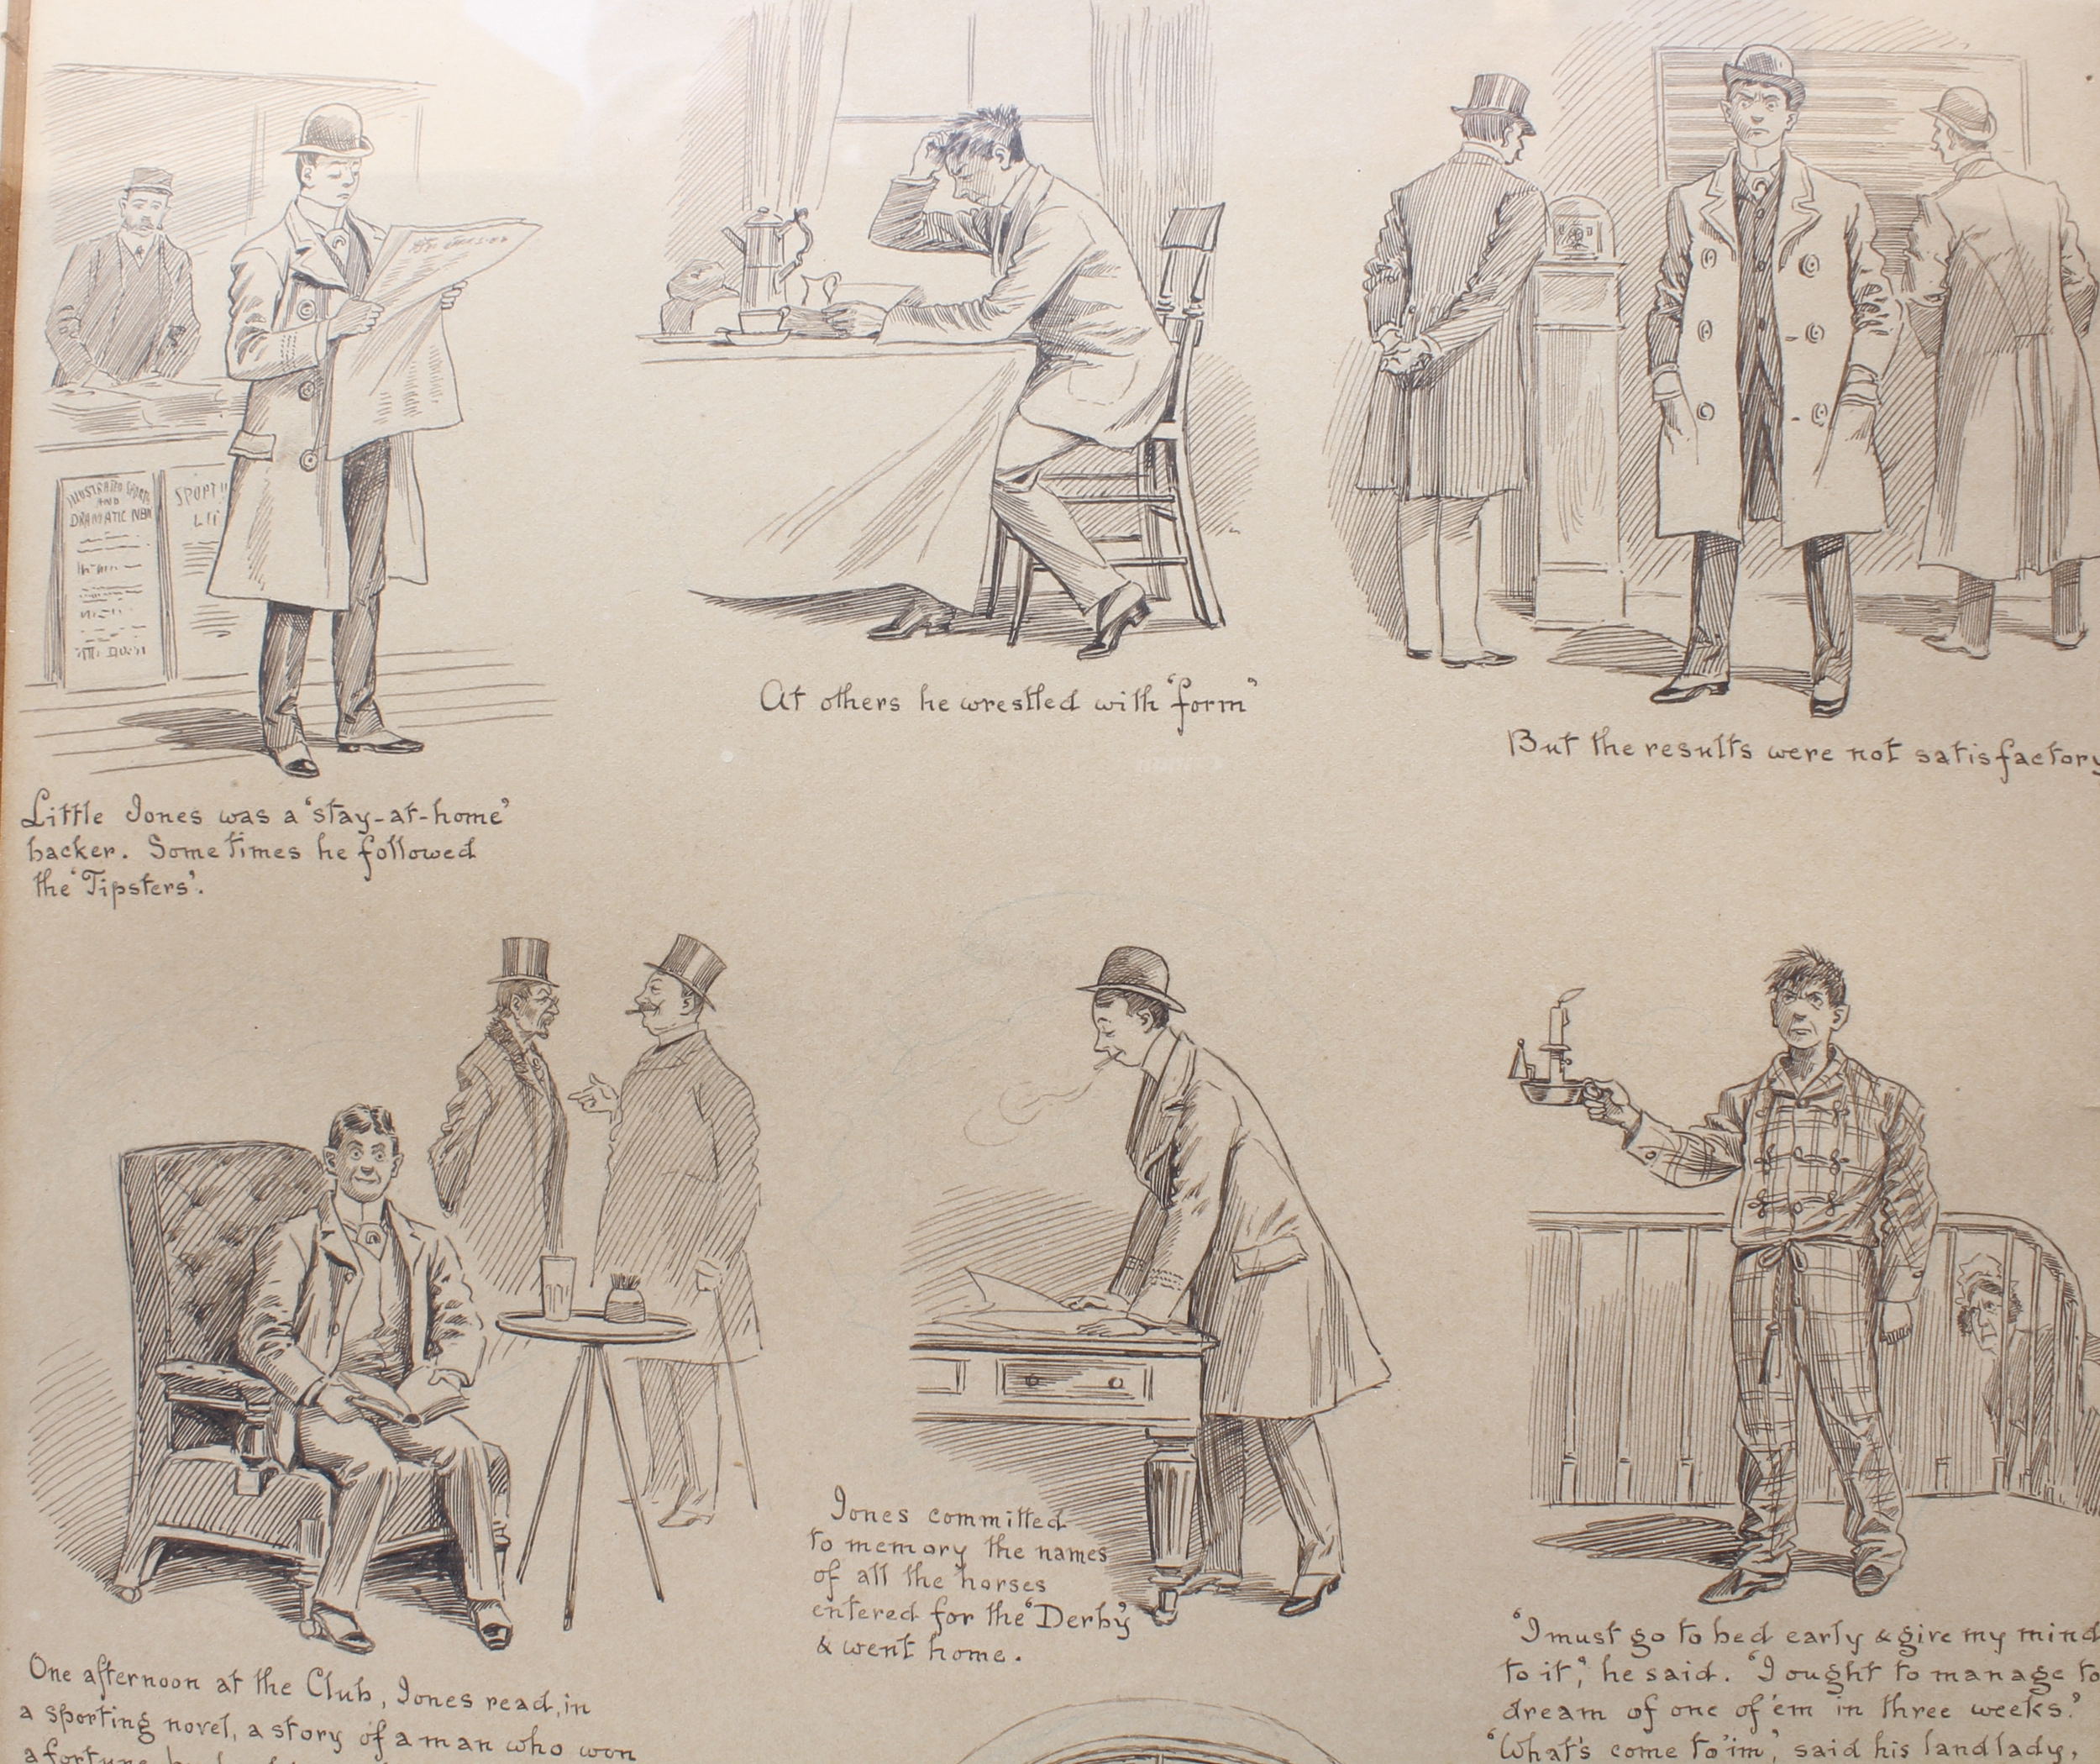 ILLUSTRATED SPORT
AND
DRAMATIC NEW
SPORT
Little Jones was a 'stay-at-home'
backer. Sometimes he followed
the 'Tipsters'.
At others he wrestled with 'form'
But the results were not satisfactory
One afternoon at the Club, Jones read, in
a sporting novel, a story of a man who won
a fortune
Jones committed
to memory the names
of all the horses
entered for the 'Derby'
& went home.
'I must go to bed early & give my mind
to it,' he said. 'I ought to manage to
dream of one of 'em in three weeks.'
'What's come to 'im', said his landlady,